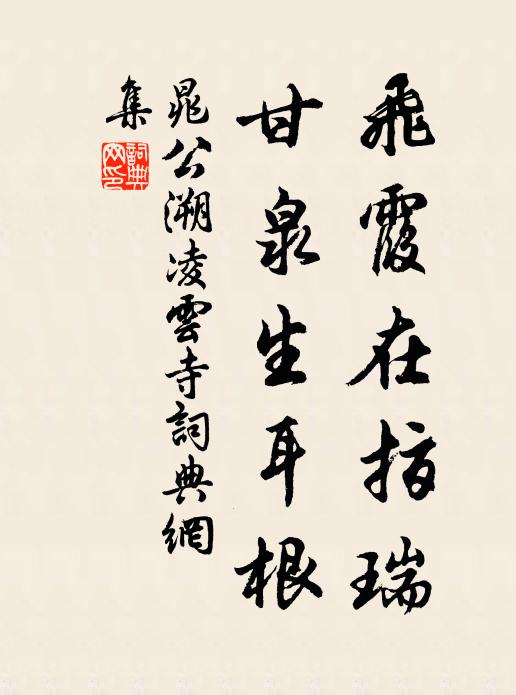 飛霞在指瑞
甘泉生耳根
晁公溯凌雲寺詞典網
集
詞典網印